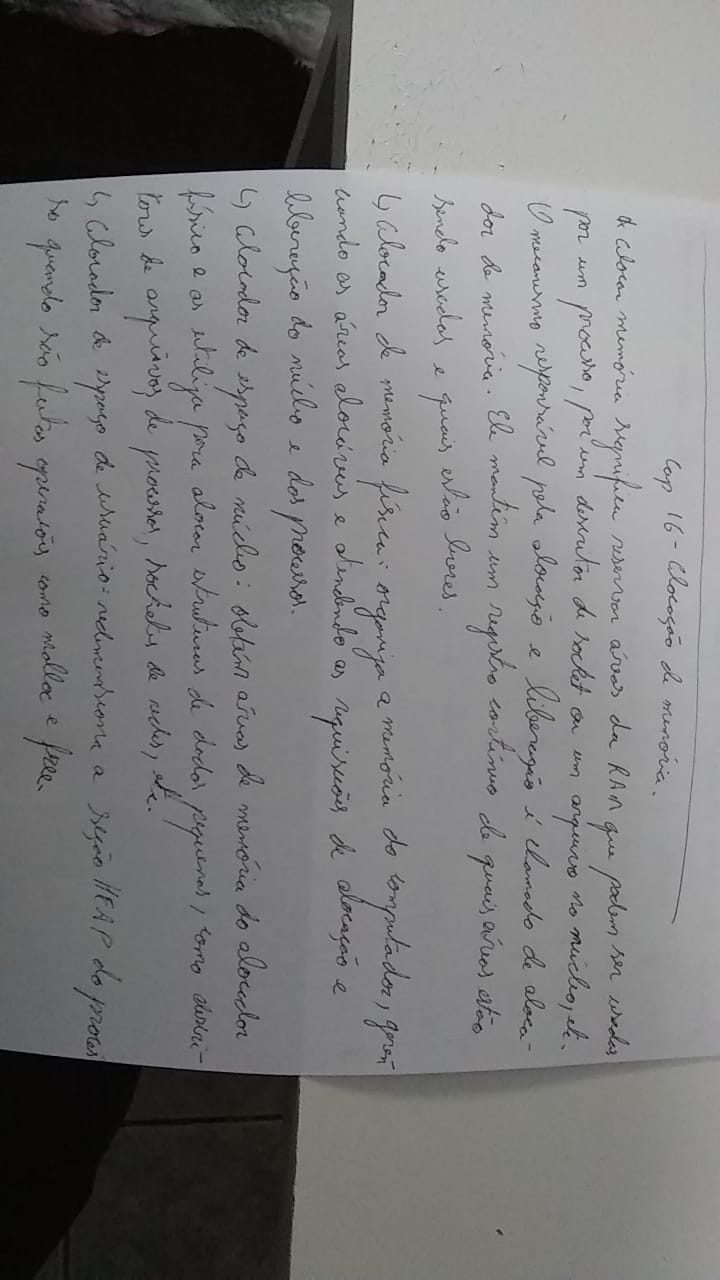 Cap 16 - Alocação de memória.
* Alocar memória significa reservar áreas da RAM que podem ser usadas
por um processo, por um descritor de socket ou um arquivo no núcleo, etc.
O mecanismo responsável pela alocação e liberação é chamado de aloca-
dor de memória. Ele mantém um registro contínuo de quais áreas estão
sendo usadas e quais estão livres.
↳ Alocador de memória física: organiza a memória do computador, geren
ciando as áreas alocáveis e atendendo as requisições de alocação e
liberação do núcleo e dos processos.
↳ Alocador de espaço de núcleo: obtém áreas de memória do alocador
físico e as utiliza para alocar estruturas de dados pequenas, como descri-
tores de arquivos, de processos, sockets de redes, etc.
↳ Alocador de espaço de usuário: redimensiona a seção HEAP do proces
so quando são feitas operações como malloc e free.